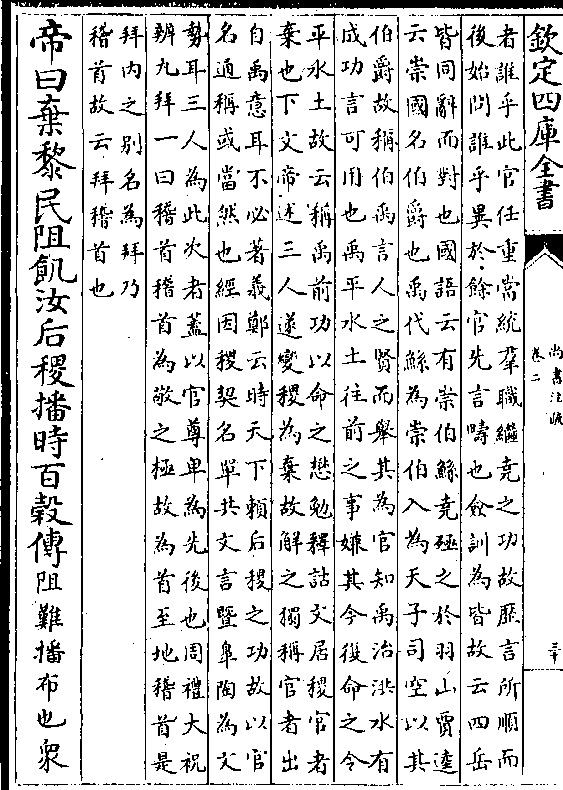 欽定四庫全書
尚書注疏
卷二
三十
者誰乎此官任重當統羣職繼堯之功故歷言所順而
後始問誰乎異於餘官先言疇也僉訓為皆故云四岳
皆同辭而對也國語云有崇伯鯀堯殛之於羽山賈逵
云崇國名伯爵也禹代鯀為崇伯入為天子司空以其
伯爵故稱伯禹言人之賢而舉其為官知禹治洪水有
成功言可用也禹平水土往前之事嫌其今復命之令
平水土故云稱禹前功以命之懋勉釋詁文居稷官者
棄也下文帝述三人遂變稷為棄故解之獨稱官者出
自禹意耳不必著義鄭云時天下賴后稷之功故以官
名通稱或當然也經因稷契名單共文言暨臯陶為文
勢耳三人為此次者蓋以官尊卑為先後也周禮大祝
辨九拜一曰稽首稽首為敬之極故為首至地稽首是
拜内之别名為拜乃
稽首故云拜稽首也
帝曰棄黎民阻飢汝后稷播時百穀傳阻難播布也衆